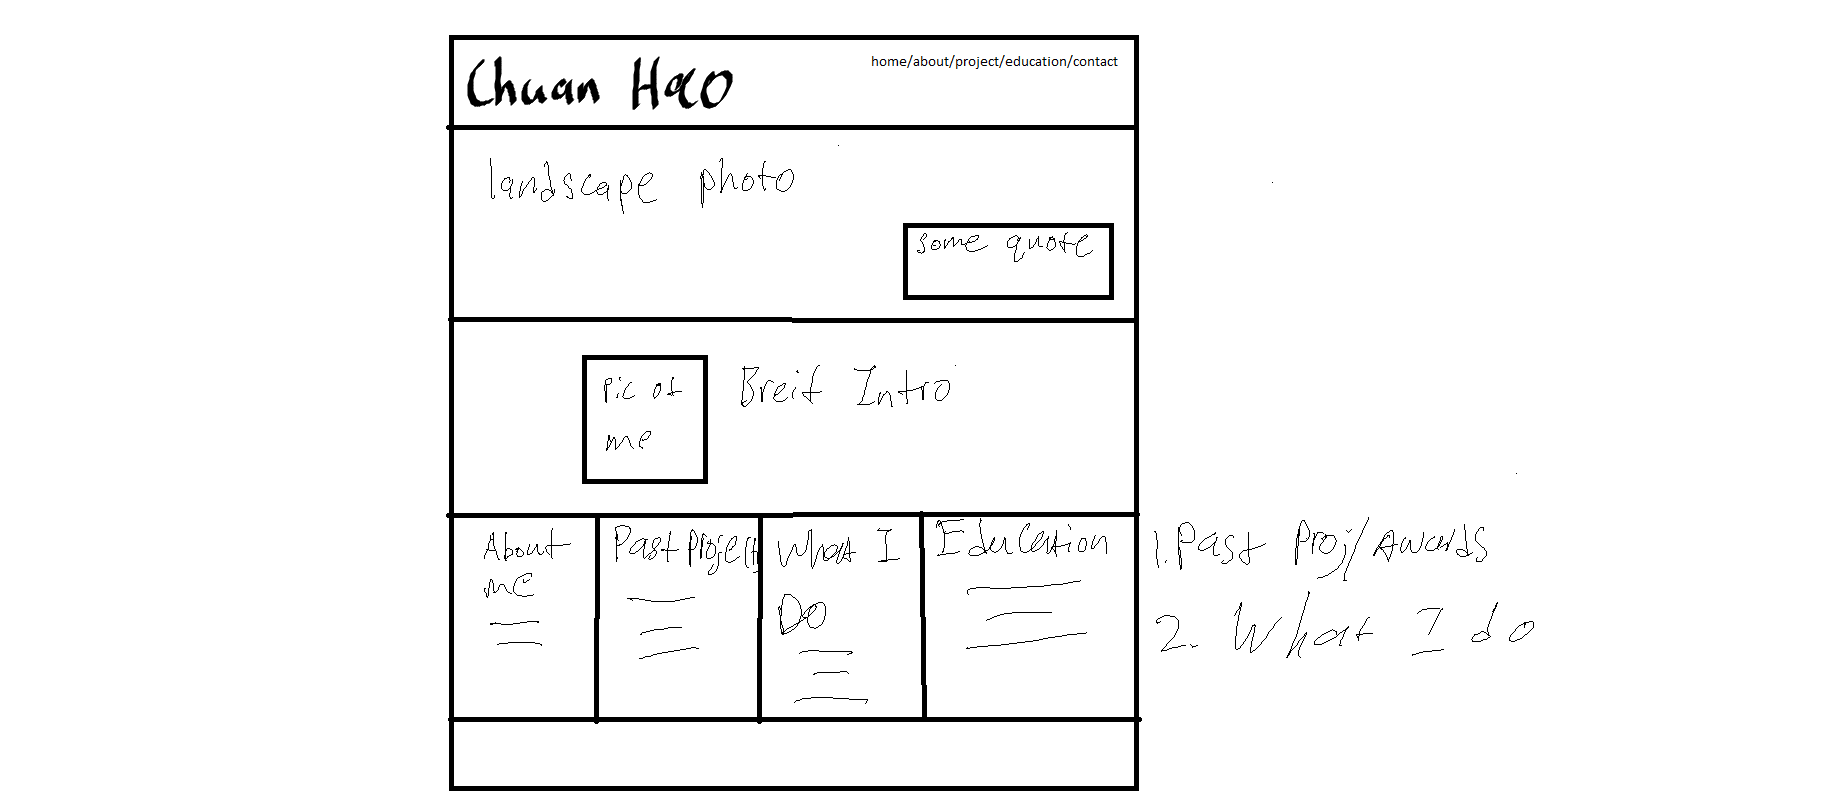 Chuan Hao
home/about/project/education/contact
landscape photo
some quote
Pic of
me
Breif Intro
About
me
Past Projects
What I
DO
Education
1. Past Proj/Awards
2. What I do